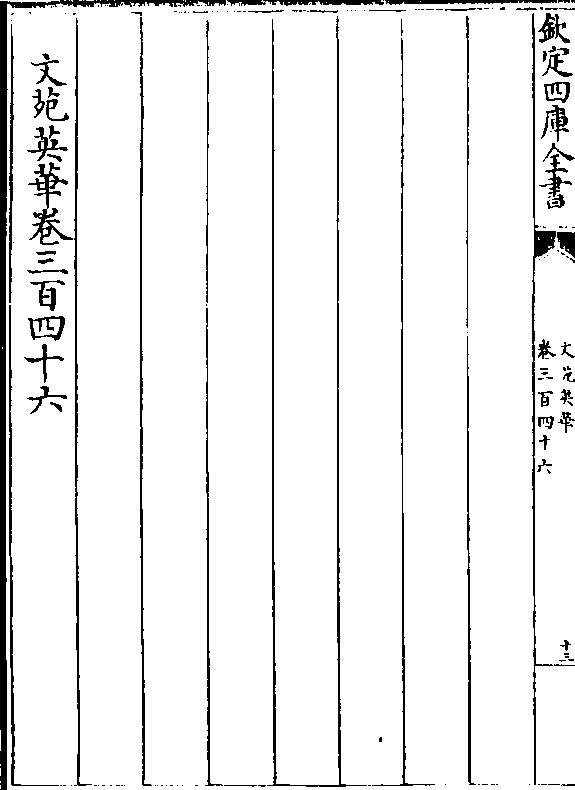 欽定四庫全書
文苑英華
卷三百四十六
十三
文苑英華卷三百四十六